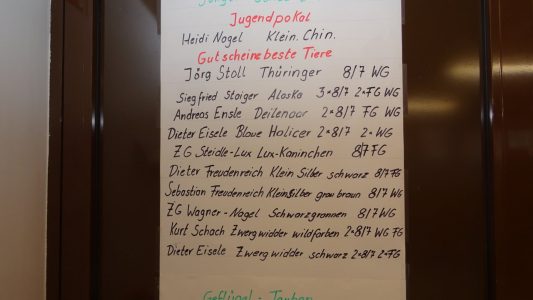 Jugendpokal
Heidi Nagel Klein. Chin.
Gutscheine beste Tiere
Jörg Stoll Thüringer 8/7 WG
Siegfried Staiger Alaska 3x8/7 2xFG WG
Andreas Ensle Deilenaar 2x8/7 FG WG
Dieter Eisele Blaue Holicer 2x8/7 2x WG
ZG Steidle-Lux Lux-Kaninchen 8/7 FG
Dieter Freudenreich Klein Silber schwarz 8/7 FG
Sebastian Freudenreich Kleinsilber grau braun 8/7 WG
ZG Wagner-Nagel Schwarzgrannen 8/7 WG
Kurt Schach Zwergwidder wildfarben 2x8/7 WG FG
Dieter Eisele Zwergwidder schwarz 2x8/7 2xFG
Geflügel - Tauben